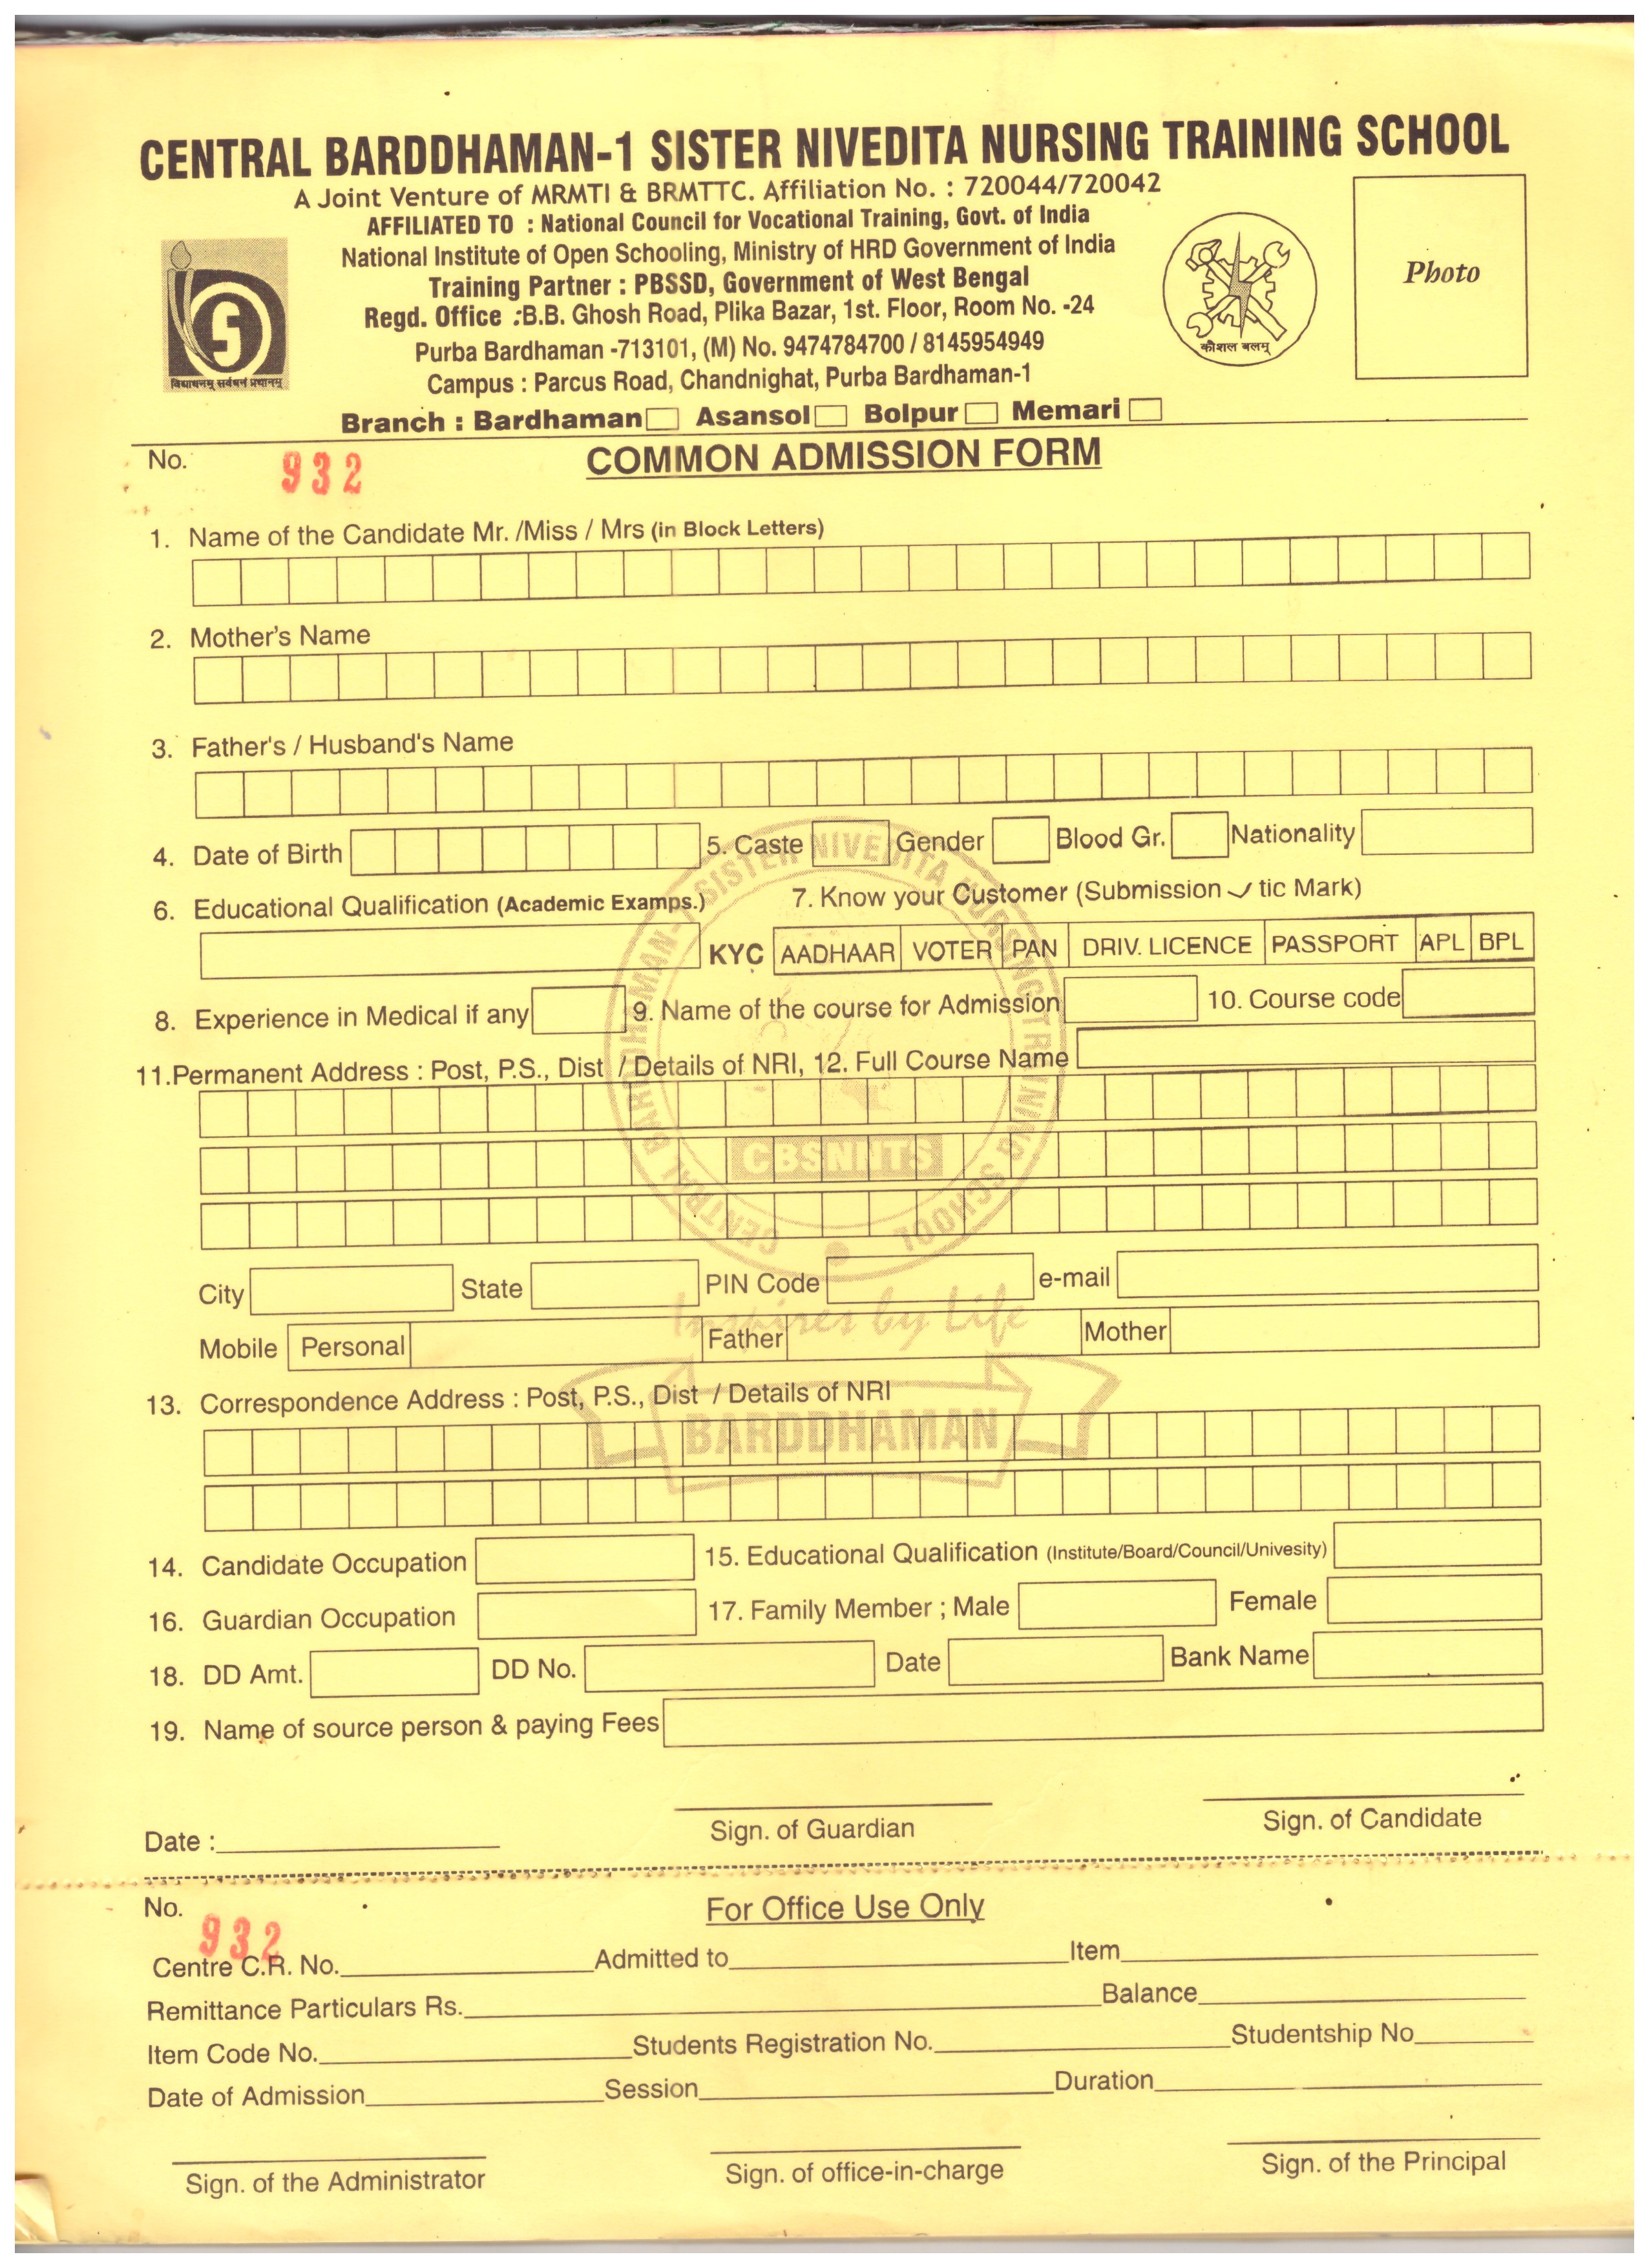 CENTRAL BARDDHAMAN-1 SISTER NIVEDITA NURSING TRAINING SCHOOL
A Joint Venture of MRMTI & BRMTTC. Affiliation No. : 720044/720042
AFFILIATED TO : National Council for Vocational Training, Govt. of India
National Institute of Open Schooling, Ministry of HRD Government of India
Training Partner : PBSSD, Government of West Bengal
Regd. Office :B.B. Ghosh Road, Plika Bazar, 1st. Floor, Room No. -24
Purba Bardhaman -713101, (M) No. 9474784700 / 8145954949
Campus : Parcus Road, Chandnighat, Purba Bardhaman-1
Branch : Bardhaman Asansol Bolpur Memari
विद्याधनम् सर्वधनं प्रधानम्
कौशल बलम्
Photo
No. 932
COMMON ADMISSION FORM
1. Name of the Candidate Mr. /Miss / Mrs (in Block Letters)
2. Mother's Name
3. Father's / Husband's Name
4. Date of Birth 5. Caste Gender Blood Gr. Nationality
6. Educational Qualification (Academic Examps.) 7. Know your Customer (Submission ✓ tic Mark)
KYC AADHAAR VOTER PAN DRIV. LICENCE PASSPORT APL BPL
8. Experience in Medical if any 9. Name of the course for Admission 10. Course code
11.Permanent Address : Post, P.S., Dist / Details of NRI, 12. Full Course Name
CENTRAL BARDDHAMAN-1 SISTER NIVEDITA NURSING TRAINING SCHOOL
CBSNNTS
City State PIN Code e-mail
Inspires by Life
Mobile Personal Father Mother
13. Correspondence Address : Post, P.S., Dist / Details of NRI
BARDDHAMAN
14. Candidate Occupation 15. Educational Qualification (Institute/Board/Council/Univesity)
16. Guardian Occupation 17. Family Member ; Male Female
18. DD Amt. DD No. Date Bank Name
19. Name of source person & paying Fees
Date : Sign. of Guardian Sign. of Candidate
No. 932 For Office Use Only
Centre C.R. No. Admitted to Item
Remittance Particulars Rs. Balance
Item Code No. Students Registration No. Studentship No
Date of Admission Session Duration
Sign. of the Administrator Sign. of office-in-charge Sign. of the Principal